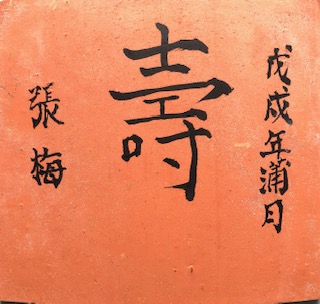 戊戌年蒲月
壽
張梅